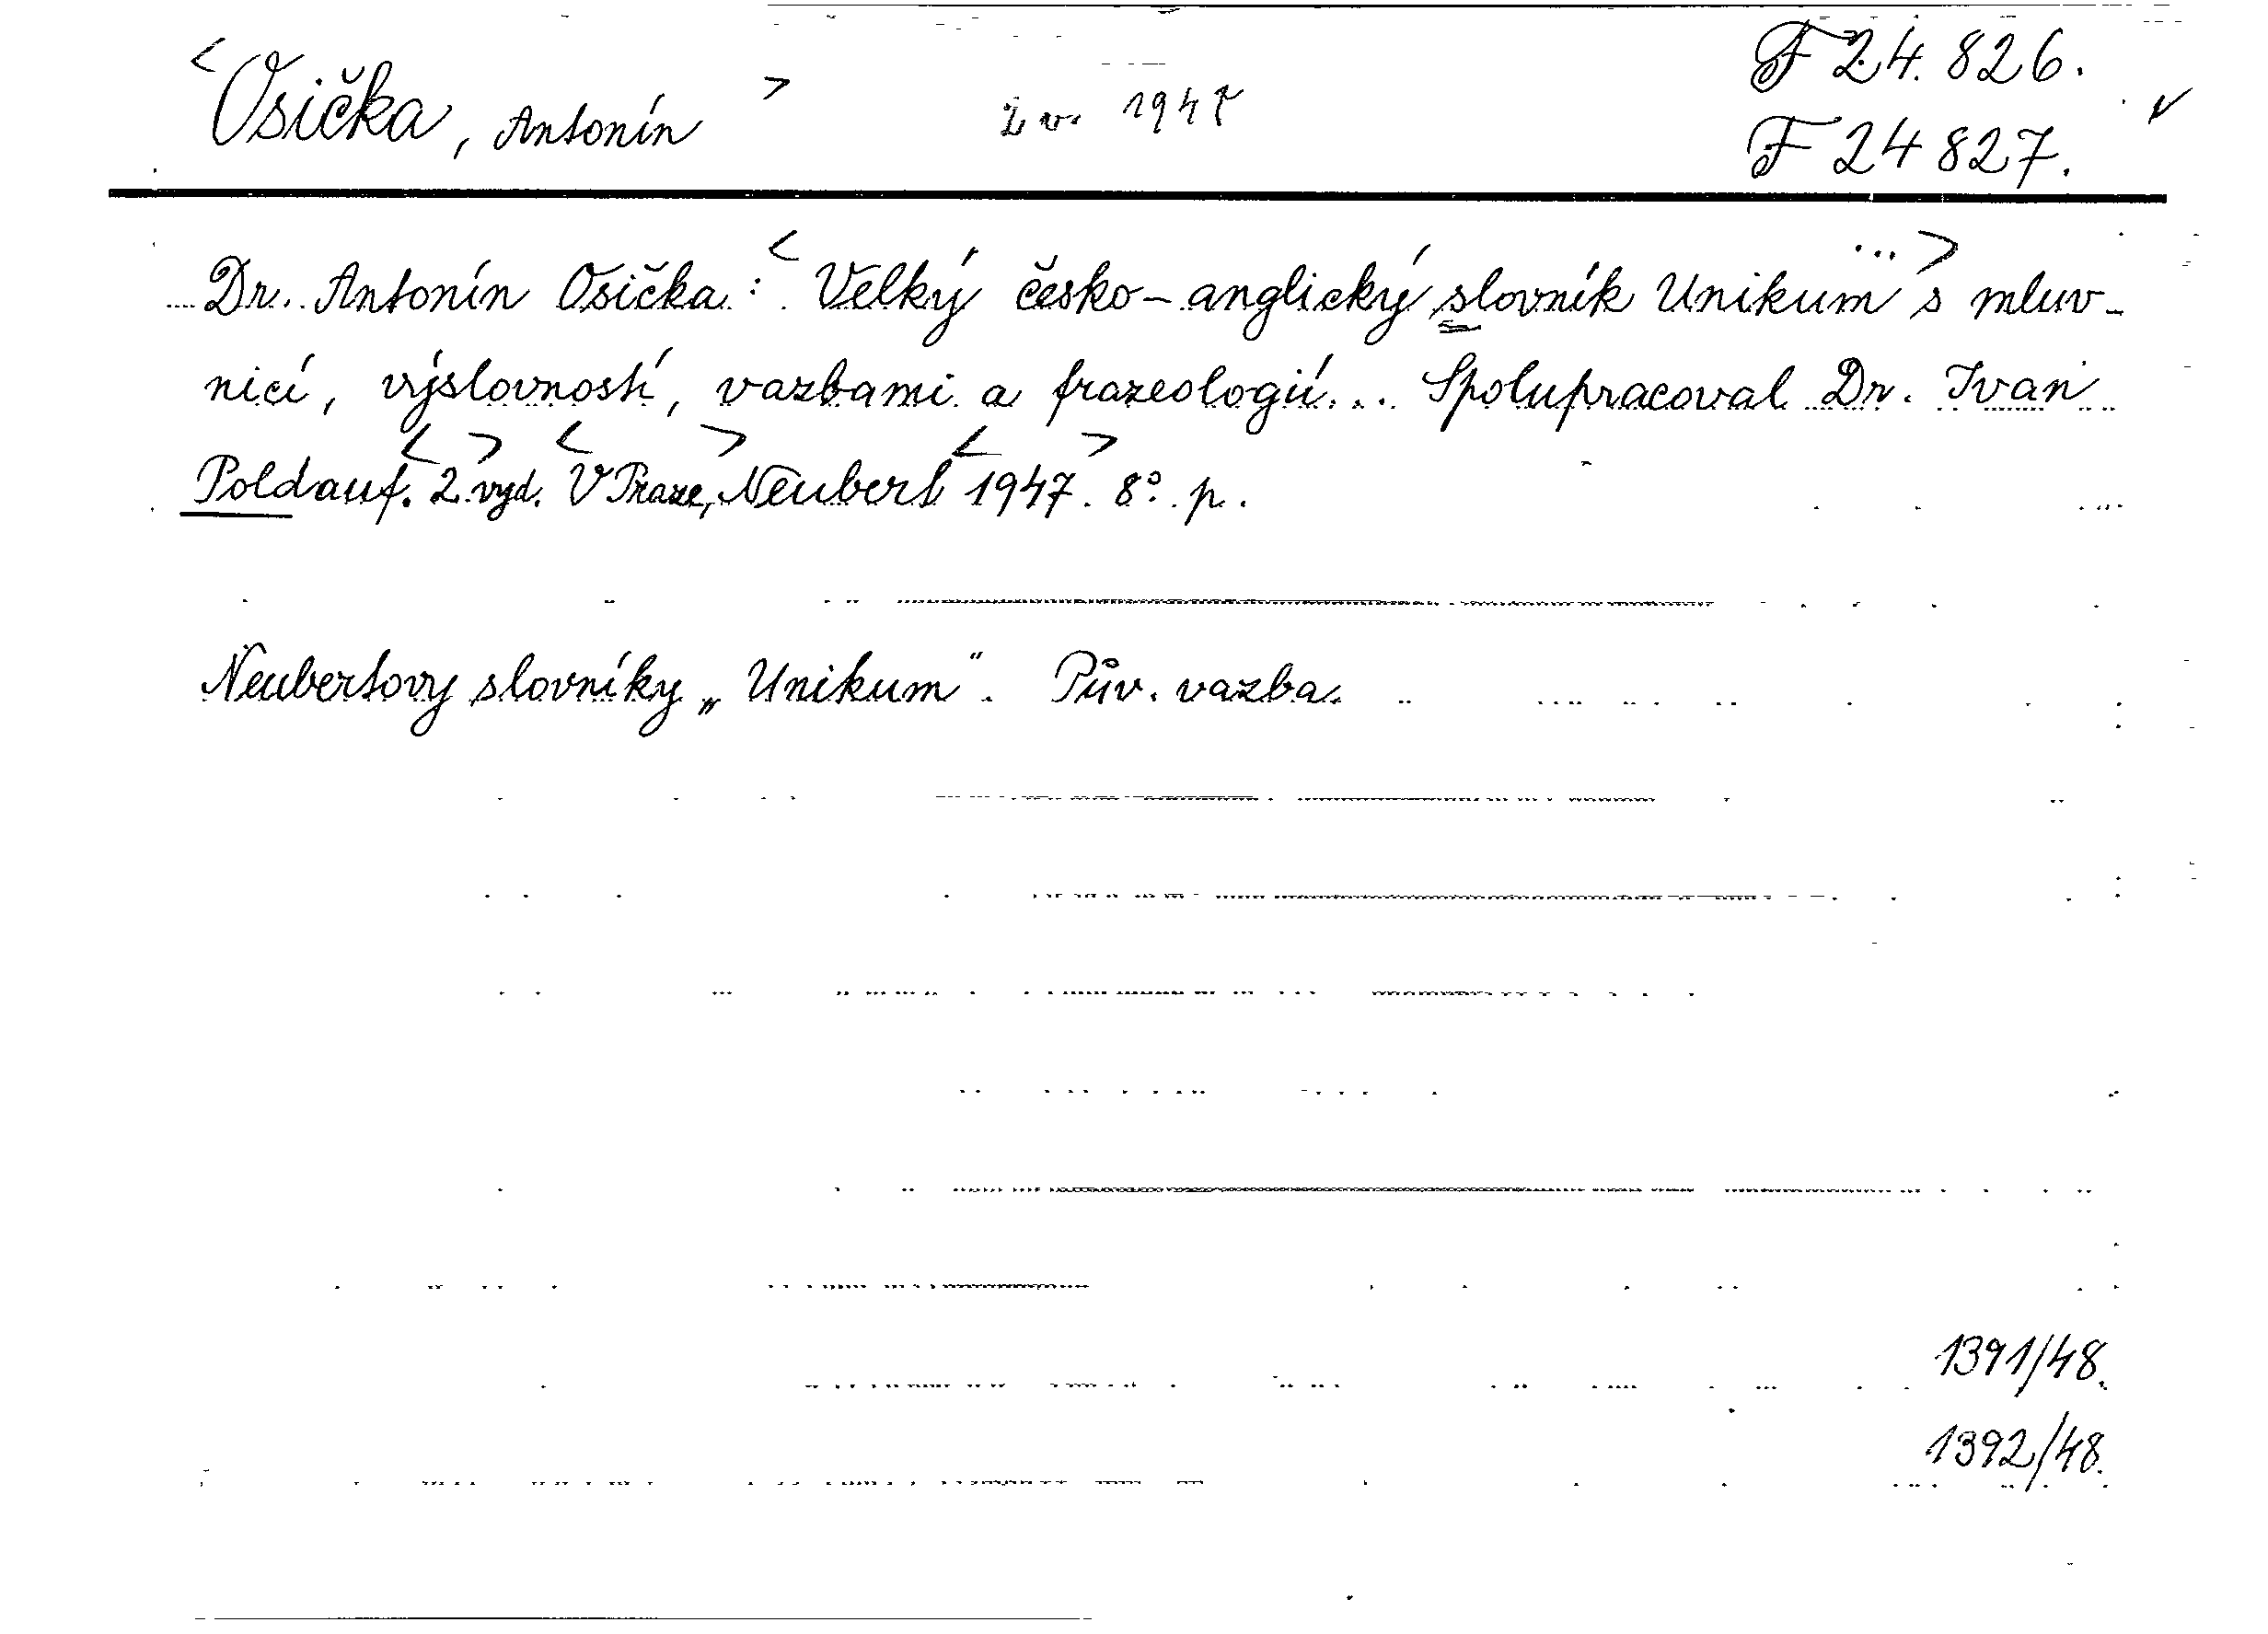 <Osička, Antonín> ž v. 1947 F 24.826.
F 24827. ✓
Dr. Antonín Osička: <Velký česko-anglický slovník Unikum ...> s mluv-
nicí, výslovností, vazbami a frazeologií... Spolupracoval Dr. Ivan
Poldauf. <2.> vyd. <V Praze,> Neubert <1947>. 8°. p.
Neubertovy slovníky „Unikum". Pův. vazba.
1391/48.
1392/48.